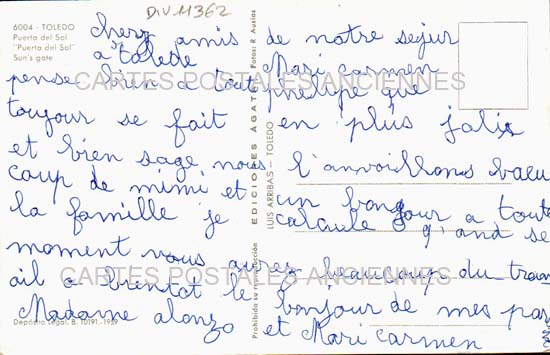 DIV 11362
6004 - TOLEDO
Puerta del Sol
"Puerta del Sol"
Sun's gate
cherz amis de notre sejur
a tolede Mari carmen
pense bien a tout philipe que
toujour se fait en plus jolis
et bien sage nous l'anvoillons
coup de mimi et un bonjour a toute
la famille je calcule q'and se
moment vous aurez beaucoup du trav
ail a bientot le bonjour de mes par
Madame alonzo et Mari carmen
CARTES POSTALES ANCIENNES
CARTES POSTALES ANCIENNES
Prohibida su reproducción
EDICIONES AGATA
Fotos: R. Auslas
LUIS ARRIBAS - TOLEDO
Depósito Legal. B. 10191-1959